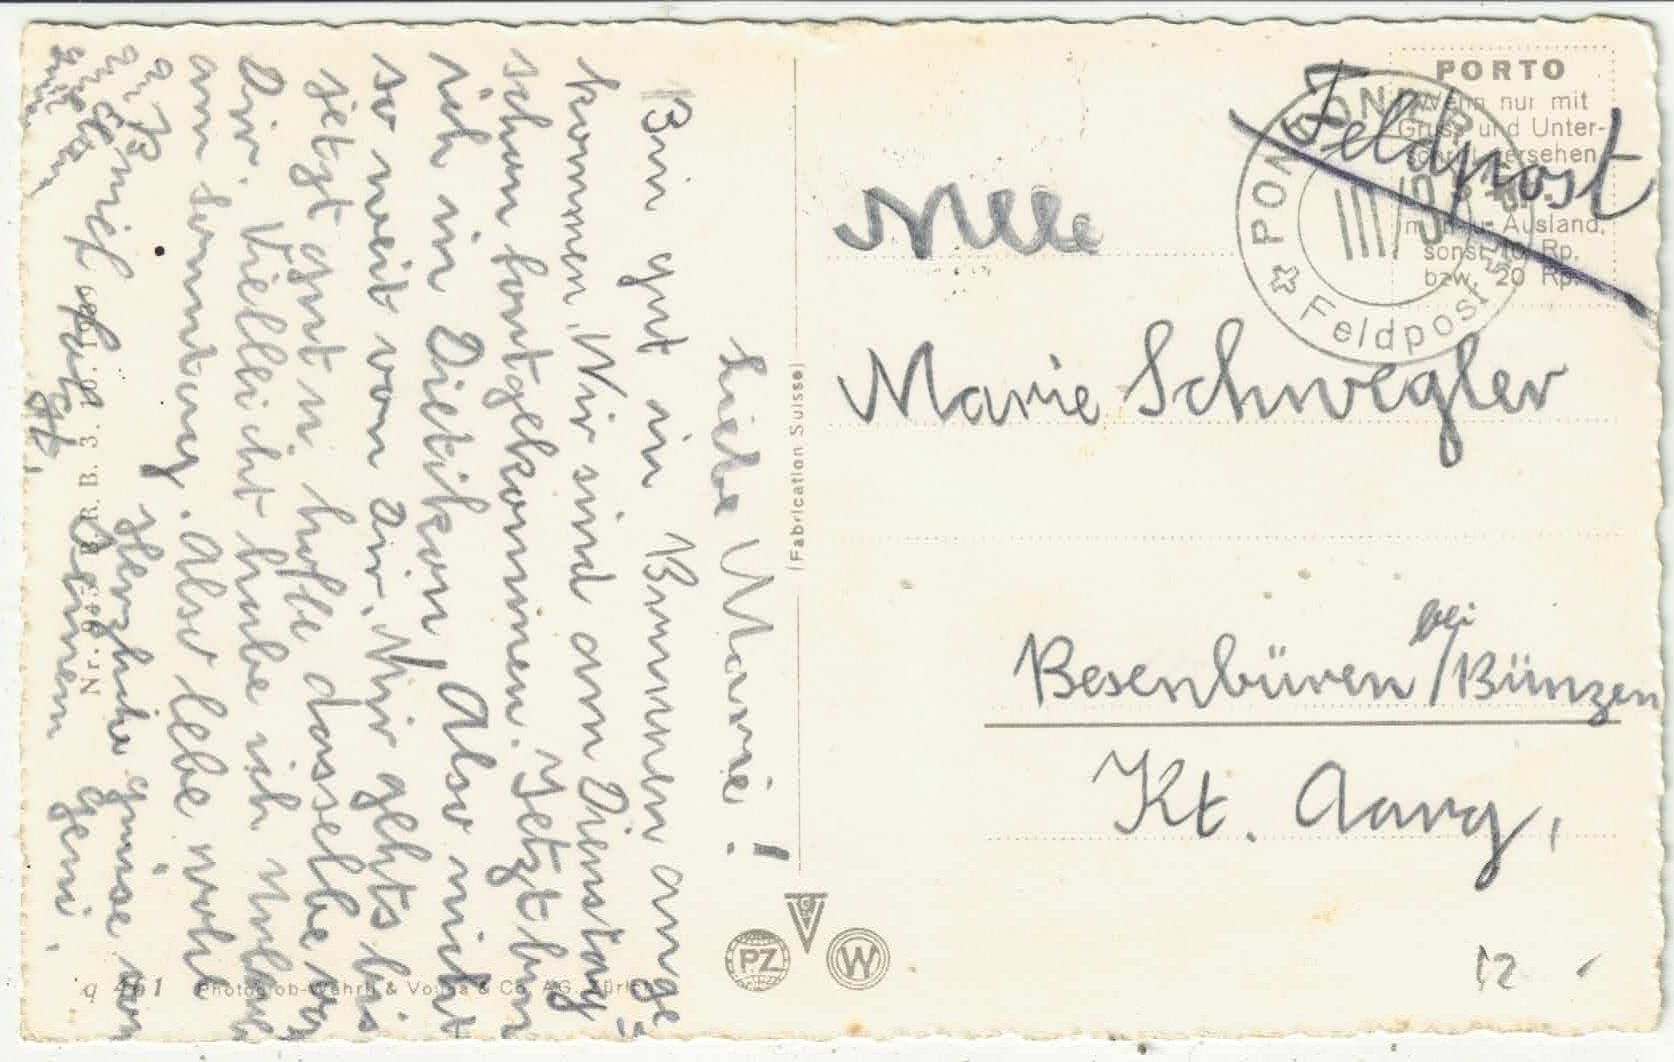 Liebe Marie!
Bin gut in Brunnen ange
kommen. Wir sind am Dienstag
schon fortgekommen. Jetzt bin
ich in Dietikon. Also nicht
so weit von Dir. Mir gehts bis
jetzt gut u. hoffe dasselbe von
Dir. Vielleicht habe ich Urlaub
am Sonntag. Also lebe wohl
Herzliche Grüsse von
Deinem Geni.
(Fabrication Suisse)
PORTO
Wenn nur mit
Gruss und Unter-
schrift versehen
im u. Ausland,
sonst 10 Rp.
bzw. 20 Rp.
Feldpost
PONTONIER
Feldpost
Mlle
Marie Schwegler
Besenbüren bei / Bünzen
Kt. Aarg,
12
PZ
VGC
W
q 461 Photoglob-Wehrli & Vouga & Co. AG. Zürich
B. R. B. 3. 10. 1939